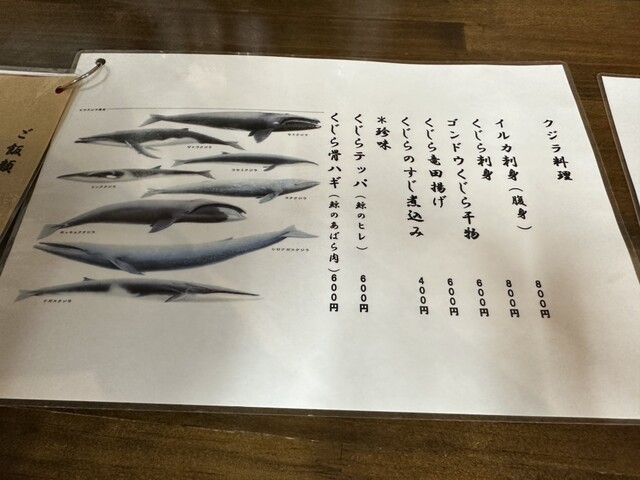 クジラ料理
イルカ刺身(腹身) 800円
くじら刺身 800円
ゴンドウくじら干物 600円
くじら竜田揚げ 600円
くじらのすじ煮込み 400円
*珍味
くじらテッパ(鯨のヒレ) 600円
くじら骨ハギ(鯨のあばら肉)600円
ご飯類